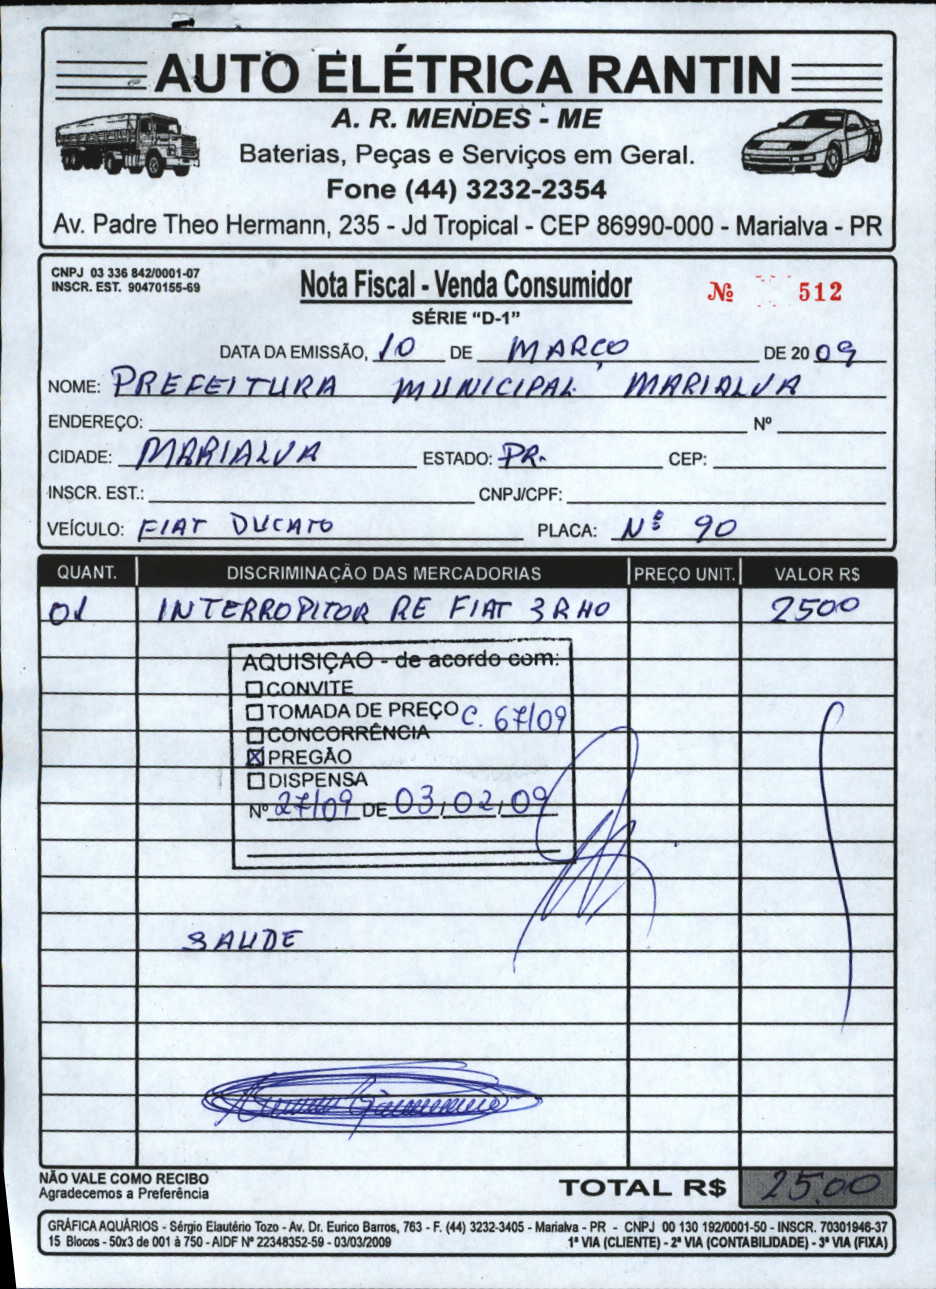 AUTO ELÉTRICA RANTIN
A. R. MENDES - ME
Baterias, Peças e Serviços em Geral.
Fone (44) 3232-2354
Av. Padre Theo Hermann, 235 - Jd Tropical - CEP 86990-000 - Marialva - PR
CNPJ 03 336 842/0001-07
INSCR. EST. 90470155-69
Nota Fiscal - Venda Consumidor
Nº 512
SÉRIE "D-1"
DATA DA EMISSÃO, 10 DE MARÇO DE 2009
NOME: PREFEITURA MUNICIPAL MARIALVA
ENDEREÇO: Nº
CIDADE: MARIALVA ESTADO: PR. CEP:
INSCR. EST.: CNPJ/CPF:
VEÍCULO: FIAT DUCATO PLACA: Nº 90
QUANT. DISCRIMINAÇÃO DAS MERCADORIAS PREÇO UNIT. VALOR R$
01 INTERROPITOR RE FIAT 3RHO 2500
AQUISIÇÃO - de acordo com:
CONVITE
TOMADA DE PREÇO C. 67/09
CONCORRÊNCIA
PREGÃO
DISPENSA
Nº 27/09 DE 03/02/09
SAUDE
NÃO VALE COMO RECIBO
Agradecemos a Preferência
TOTAL R$ 25,00
GRÁFICA AQUÁRIOS - Sérgio Elautério Tozo - Av. Dr. Eurico Barros, 763 - F. (44) 3232-3405 - Marialva - PR - CNPJ 00 130 192/0001-50 - INSCR. 70301946-37
15 Blocos - 50x3 de 001 à 750 - AIDF Nº 22348352-59 - 03/03/2009 1ª VIA (CLIENTE) - 2ª VIA (CONTABILIDADE) - 3ª VIA (FIXA)